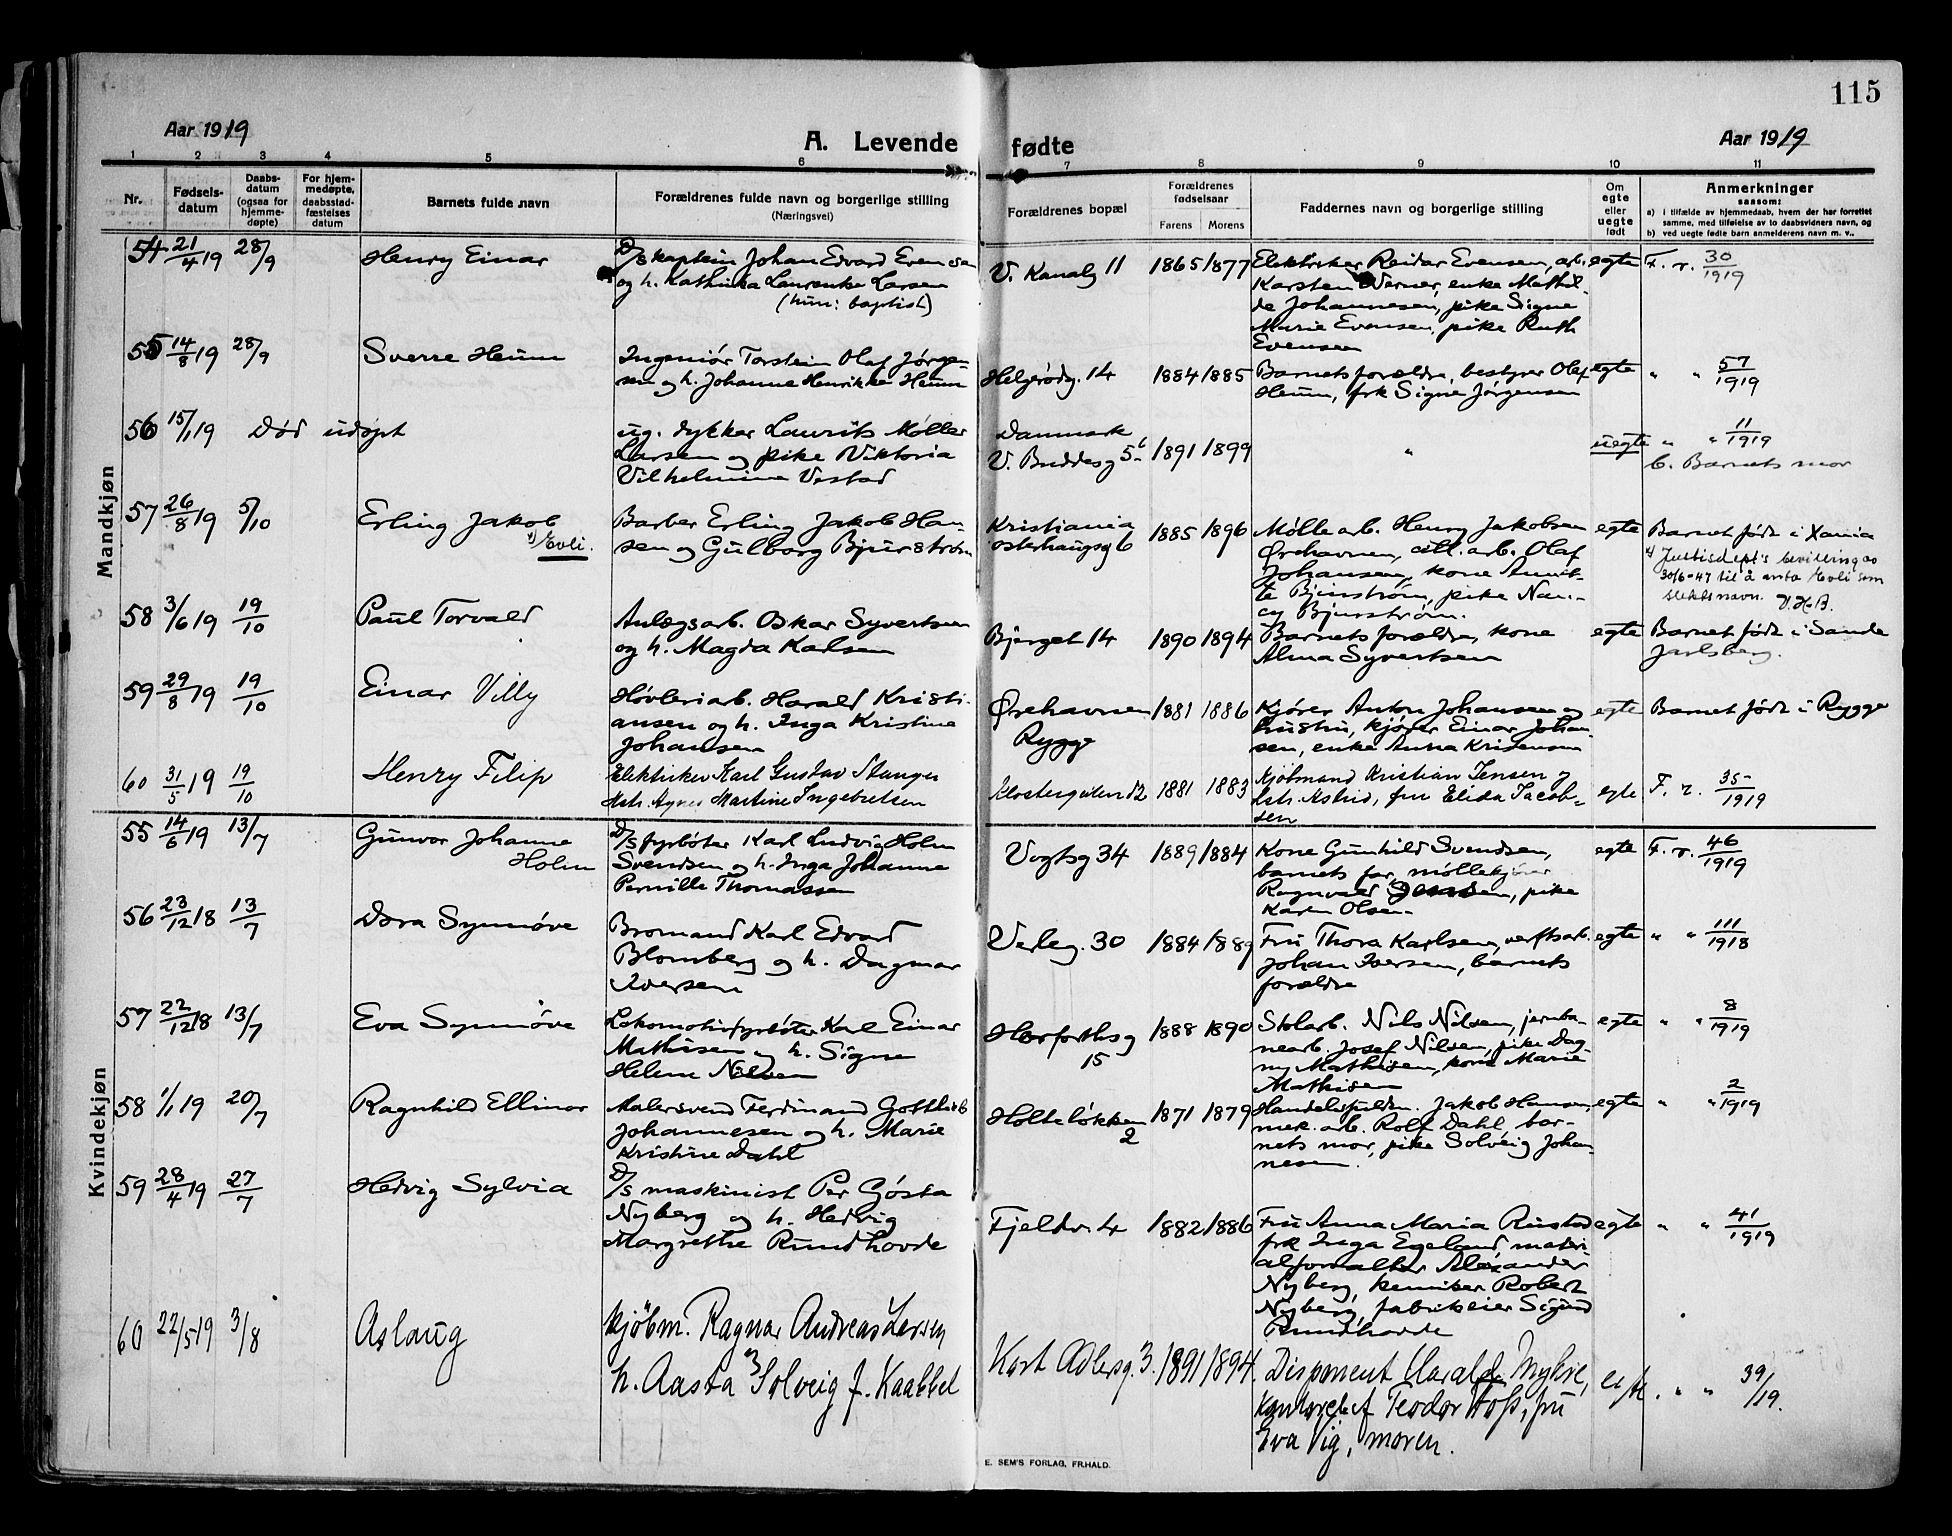 115
Aar 1919
A. Levende fødte
Aar 1919
1 2 3 4 5 6 7 8 9 10 11
Nr.
Fødsels-
datum
Daabs-
datum
(ogsaa for
hjemme-
døpte)
For hjem-
medøpte,
daabsstad-
fæstelses
datum
Barnets fulde navn
Forældrenes fulde navn og borgerlige stilling
(Næringsvei)
Forældrenes bopæl
Forældrenes
fødselsaar
Farens Morens
Faddernes navn og borgerlige stilling
Om
egte
eller
uegte
født
Anmerkninger
saasom:
a) i tilfælde av hjemmedaab, hvem der har forrettet
samme, med tilføielse av to daabsvidners navn, og
b) ved uegte fødte barn anmelderens navn m. v..
Mandkjøn
54 21/4 19 28/9 Henry Einar
D/s kaptein Johan Edvard Evensen
og h. Kathinka Laurenke Larsen
(hun: baptist)
V. Kanalg 11 1865 1877
Elektriker Reidar Evensen, arb.
Karsten Werner, enke Mathil-
de Johannesen, pike Signe
Marie Evensen, pike Ruth
Evensen
egte F. r. 30/1919
55 14/8 19 28/9 Sverre Heum
Ingeniør Torstein Olaf Jørgen-
sen og h. Johanne Henrikke Heum
Helgerødg. 14 1884 1885
Barnets forældre, bestyrer Olaf
Heum, frk Signe Jørgensen
egte " " 57/1919
56 15/1 19 Død udøpt
ug. dykker Laurits Møller
Larsen og pike Viktoria
Vilhelmine Vestad
Danmark
V. Buddesg 5 b 1891 1899
"
uegte " " 11/1919
b. Barnets mor
57 26/8 19 5/10 Erling Jakob
1) Evli.
Barber Erling Jakob Han-
sen og Gulborg Bjurstrøm
Kristiania
Osterhausg 6 1885 1896
Mølle arb. Henry Jakobsen
Ørehavnen, cell. arb. Olaf
Johansen, kone Annet-
te Bjurstrøm, pike Nan-
cy Bjurstrøm.
egte Barnet født i Xania
1) Justisdept's bevilling av
30/6-47 til å anta Evli som
slektsnavn. V.H.B.
58 3/6 19 19/10 Paul Torvald
Anlægsarb. Oskar Syvertsen
og h. Magda Karlsen
Bjerget 14 1890 1894
Barnets forældre, kone
Alma Syvertsen
egte Barnet født i Sande
Jarlsberg.
59 29/8 19 19/10 Einar Villy
Høvleriarb. Harald Kristi-
ansen og h. Inga Kristine
Johansen
Ørehavnen
Rygge 1881 1886
Kjører Anton Johansen og
hustru, kjører Einar Johan-
sen, enke Anna Kristensen
egte Barnet født i Rygge
60 31/5 19 19/10 Henry Filip
Elektriker Karl Gustav Stanger
hstr. Agnes Martine Ingebretsen
Klostergaten 12 1881 1883
Kjøbmand Kristian Jensen og
hstr. Astrid, fru Elida Jacob-
sen
egte F. r. 35/1919
Kvindekjøn
55 14/6 19 13/7 Gunvor Johanne
Holm
D/s fyrbøter Karl Ludvig Holm
Svendsen og h. Inga Johanne
Pernille Thomassen
Vogtsg 34 1889 1884
Kone Gunhild Svendsen,
barnets far, møllekjører
Ragnvald Svendsen, pike
Karin Olsen
egte F. r. 46/1919
56 23/12 18 13/7 Dora Synnøve
Bromand Karl Edvard
Blomberg og h. Dagmar
Iversen
Verleg. 30 1884 1889
Fru Thora Karlsen, verftsarb.
Johan Iversen, barnets
forældre
egte " " 111/1918
57 22/12 18 13/7 Eva Synnøve
Lokomotivfyrbøter Karl Einar
Mathisen og h. Signe
Helene Nilsen
Herforthsg
15 1888 1890
Stolarb. Nils Nilsen, jernba-
nearb. Josef Nilsen, pike Dag-
ny Mathisen, kone Marie
Mathisen
egte " " 8/1919
58 1/1 19 20/7 Ragnhild Ellinor
Malersvend Ferdinand Gottlieb
Johannesen og h. Marie
Kristine Dahl
Holteløkken
2 1871 1879
Handelsfuldm. Jakob Hansen,
mek. arb. Rolf Dahl, bar-
nets mor, pike Solveig Johan-
nesen.
egte " " 2/1919
59 28/4 19 27/7 Hedvig Sylvia
D/s maskinist Per Gösta
Nyberg og h. Hedvig
Margrethe Rundhovde
Fjeldv. 4 1882 1886
Fru Anna Maria Rustad
frk Inga Egeland, materi-
alforvalter Alexander
Nyberg, kemiker Robert
Nyberg, fabrikeier Sigurd
Rundhovde
egte " " 41/1919
60 22/5 19 3/8 Aslaug
Kjöbm. Ragnar Andreas Larsen
h. Aasta Solveig f. Kaabbel
Kort Adlersg. 3. 1891 1894.
Disponent Harald Myhre,
Teodor Foss, fru
Eva Vig, moren.
" " 39/19.
E. SEM'S FORLAG, FR.HALD.